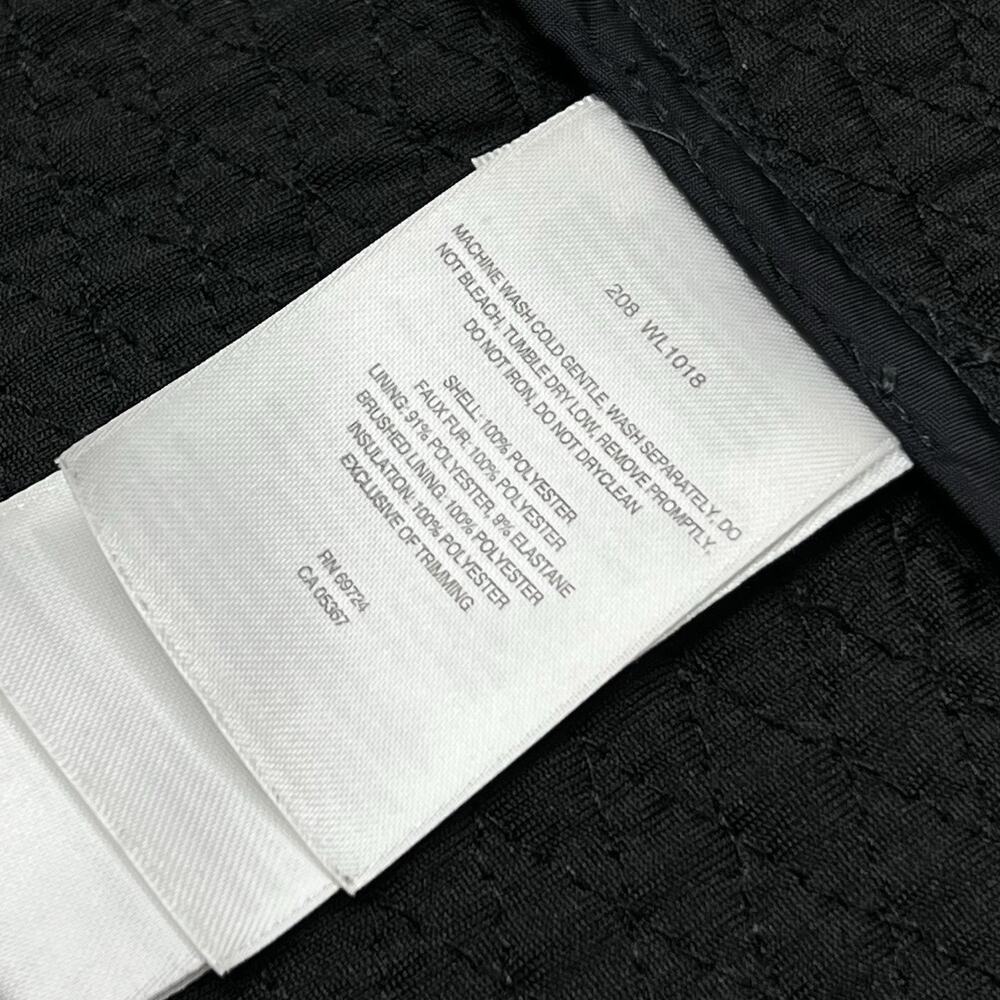 208 WL1018
MACHINE WASH COLD GENTLE, WASH SEPARATELY, DO
NOT BLEACH, TUMBLE DRY LOW, REMOVE PROMPTLY,
DO NOT IRON, DO NOT DRYCLEAN
SHELL: 100% POLYESTER
FAUX FUR: 100% POLYESTER
LINING: 91% POLYESTER, 9% ELASTANE
BRUSHED LINING: 100% POLYESTER
INSULATION: 100% POLYESTER
EXCLUSIVE OF TRIMMING
RN 69724
CA 05367